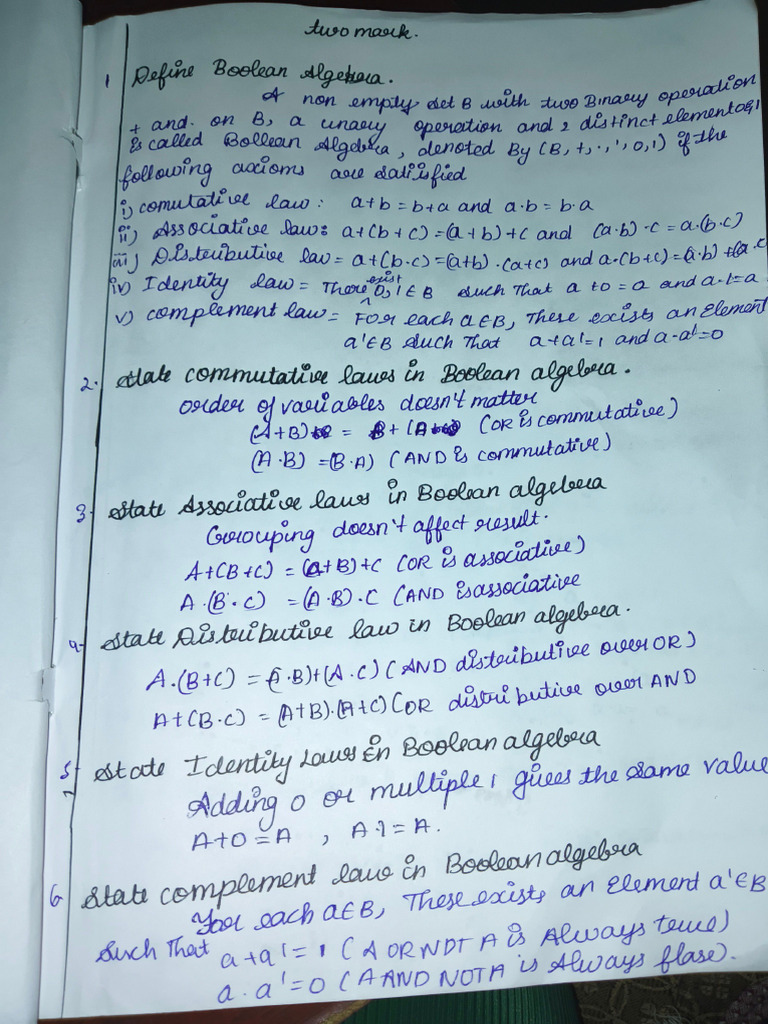 two mark.
1 Define Boolean Algebra.
A non empty set B with two Binary operation
+ and. on B, a unary operation and 2 distinct element 0,1
is called Bollean Algebra, denoted By (B, +, ·, ', 0, 1) if the
following axioms are satisfied
i) comutative law : a+b = b+a and a·b = b·a
ii) Associative law: a+(b+c) = (a+b)+c and (a·b)·c = a·(b·c)
iii) Distributive law = a+(b·c) = (a+b)·(a+c) and a·(b+c) = (a·b)+(a·c
iv) Identity law = There exist 0,1∈B such That a+0=a and a·1=a
v) complement law = For each a∈B, There exists an Element
a'∈B such That a+a'=1 and a·a'=0
2. state commutative laws in Boolean algebra.
order of variables doesn't matter
(A+B) = B+(A (OR is commutative)
(A·B) = (B·A) (AND is commutative)
3. state Associative laws in Boolean algebra
Grouping doesn't affect result.
A+(B+C) = (A+B)+C (OR is associative)
A·(B·C) = (A·B)·C (AND is associative
4. state Distributive law in Boolean algebra.
A·(B+C) = (A·B)+(A·C) (AND distributive over OR)
A+(B·C) = (A+B)·(A+C) (OR distributive over AND
5. state Identity Laws in Boolean algebra
Adding 0 or multiple 1 gives the same value
A+0=A , A·1=A.
6 state complement law in Boolean algebra
For each a∈B, There exists an Element a'∈B
such That a+a'=1 (A OR NOT A is Always true)
a·a'=0 (A AND NOT A is Always flase).